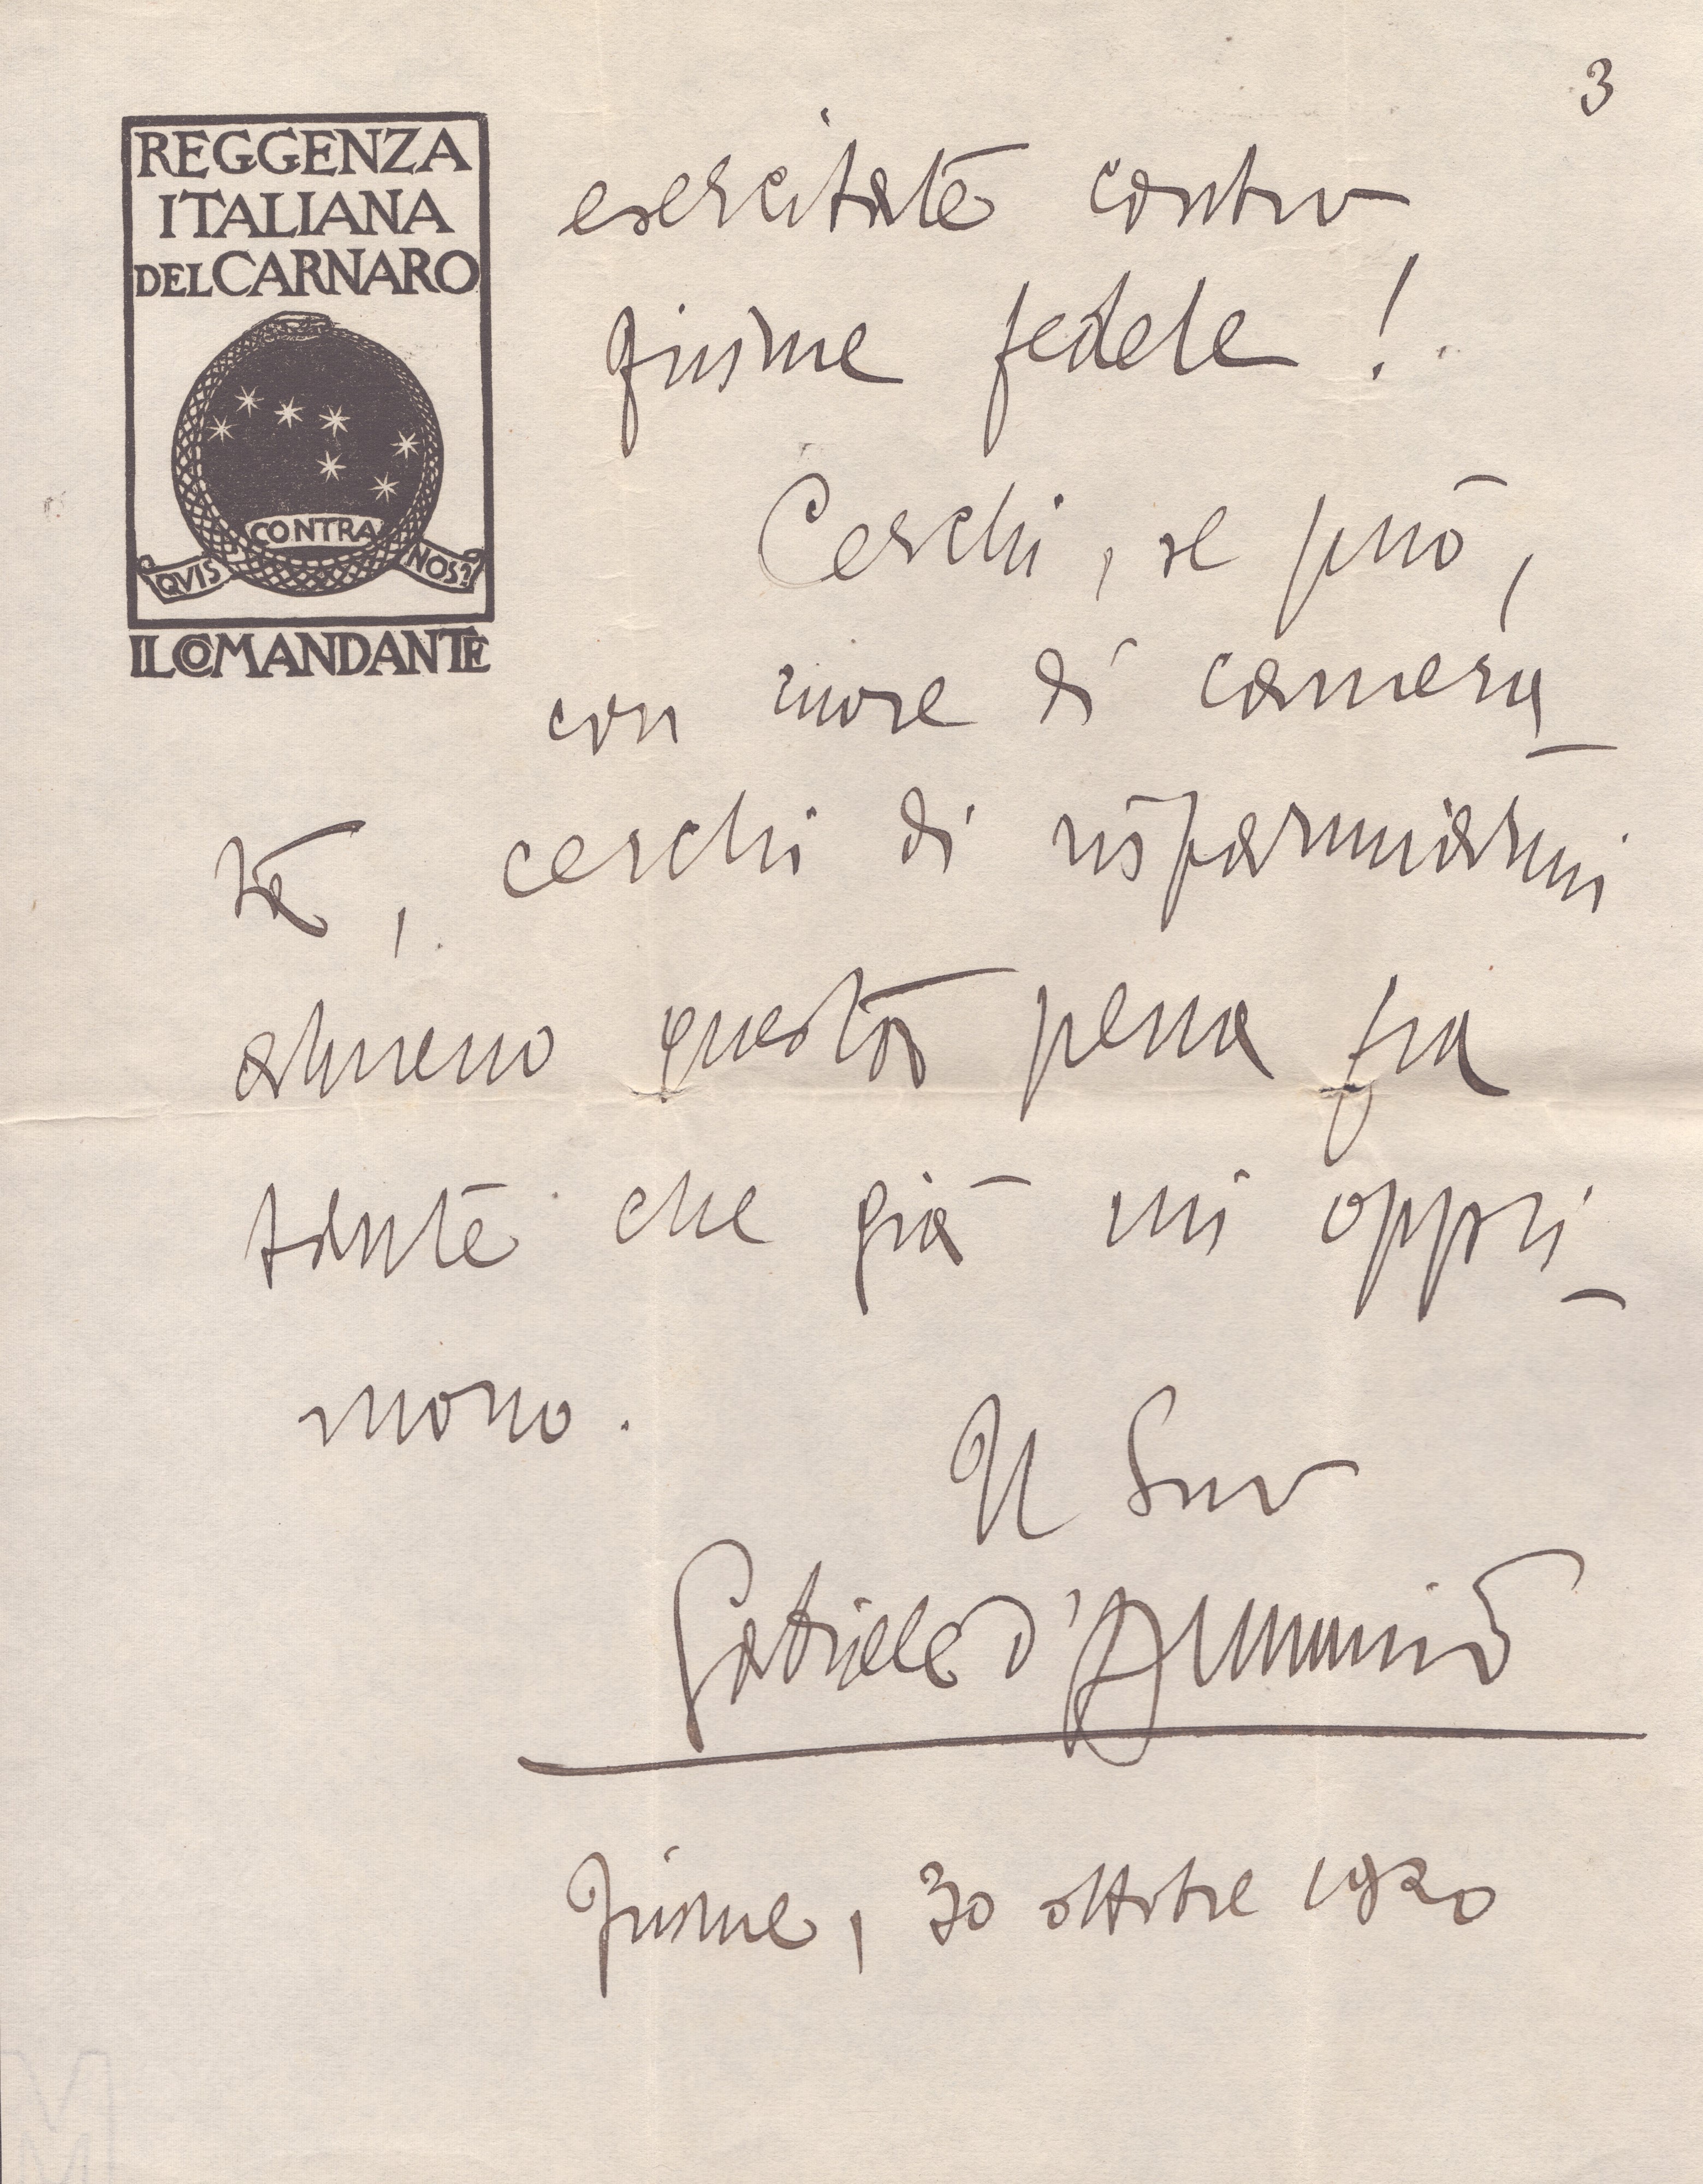 3
REGGENZA
ITALIANA
DEL CARNARO
QVIS CONTRA NOS?
IL COMANDANTE
esercitate contro
Fiume fedele!
Cerchi, se può,
con cuore di camera-
ta, cerchi di risparmiarmi
almeno questa pena fra
tante che già mi oppri-
mono.
Il Suo
Gabriele d'Annunzio
Fiume, 30 ottobre 1920